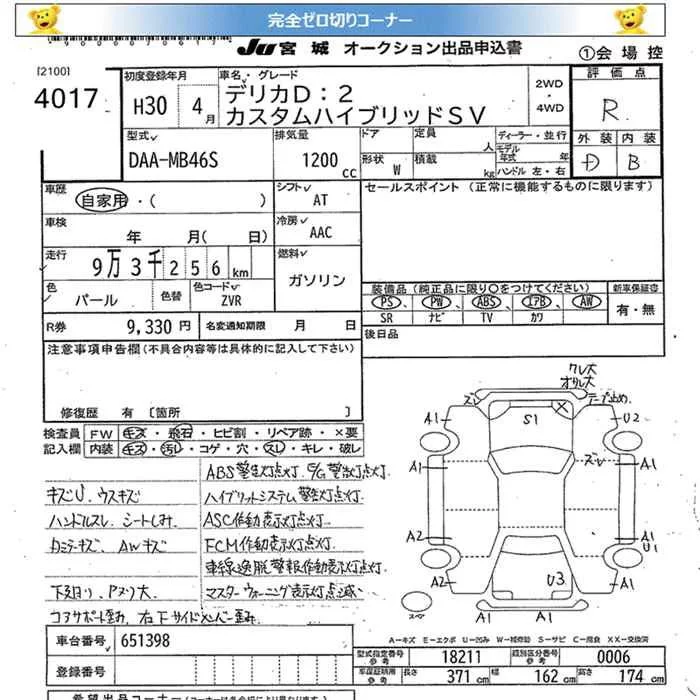 完全ゼロ切りコーナー
JU 宮城 オークション出品申込書
①会場控
[2100]
4017
初度登録年月
H30 4月
車名・グレード
デリカD:2
カスタムハイブリッドSV
2WD
・
4WD
評価点
R
外装 内装
D B
型式
DAA-MB46S
排気量
1200 cc
ドア
定員 人
形状 W
積載 kg
ディーラー・並行
モデル年式 年
ハンドル 左・右
車歴
自家用・( )
シフト
AT
セールスポイント (正常に機能するものに限ります)
車検
年 月( 日)
冷房
AAC
走行
9万3千256km
燃料
ガソリン
色
パール
色替
色コード
ZVR
装備品(純正品に限り○をつけてください)
PS PW ABS エアB AW
SR ナビ TV カワ
新車保証書
有・無
R券 9,330円
名変通知期限 月 日
後日品
注意事項申告欄(不具合内容等は具体的に記入して下さい)
修復歴 有 [箇所 ]
検査員記入欄
FW キズ・飛石・ヒビ割・リペア跡・×要
内装 キズ・汚レ・コゲ・穴・スレ・キレ・破レ
ABS警告灯点灯.
キズU. ウスキズ
ハイブリットシステム警告灯点灯.
ハンドルスレ. シートしみ.
ASC作動表示灯点灯.
AWキズ
FCM作動表示灯点灯.
車線逸脱警報作動表示灯点灯
下廻り.
マスターウォーニング表示灯点滅
コアサポート歪み. 右下サイドメンバー歪み.
A1 S1 U2
A1 A1
A2 A1
U1
A2 U3 A2
A1 A1
A-キズ E-エクボ U-凹み W-補修跡 S-サビ C-腐食 XX-交換済
車台番号 651398
登録番号
型式指定番号 参考 18211
類別区分番号 参考 0006
車庫証明用 参考 長さ 371 cm 幅 162 cm 高さ 174 cm
希望出品コーナー